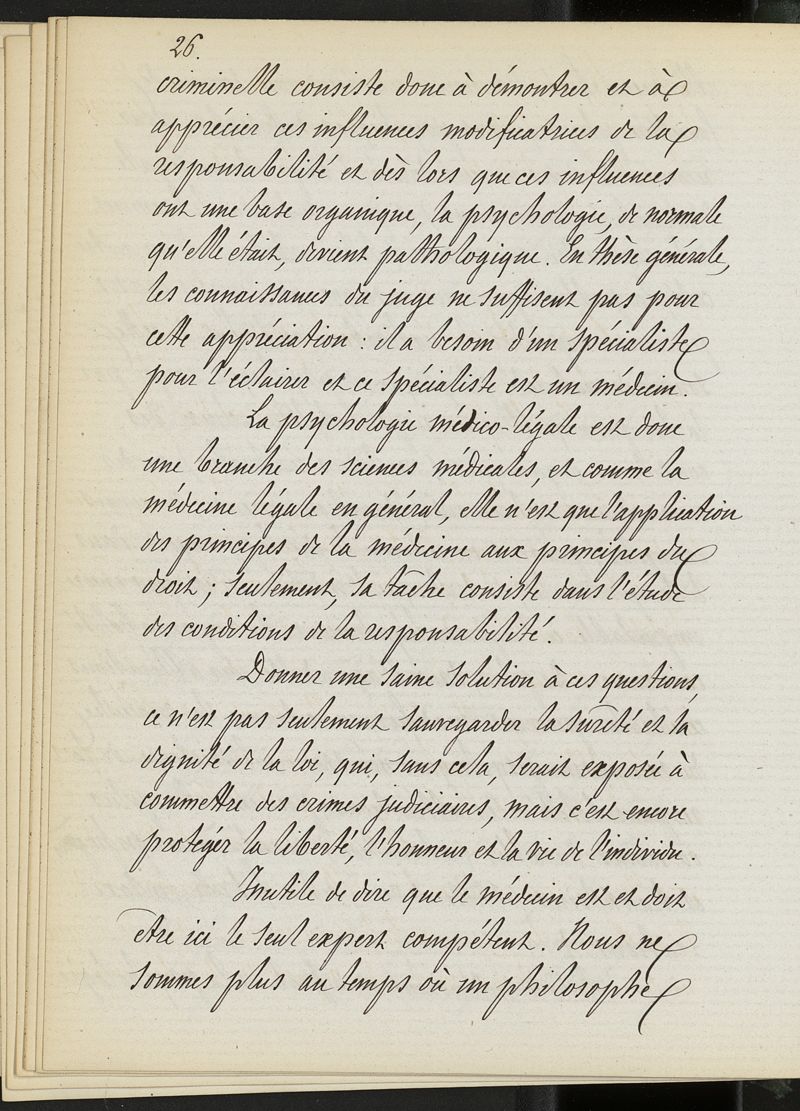 26.
criminelle consiste donc à démontrer et à
apprécier ces influences modificatrices de la
responsabilité et dès lors que ces influences
ont une base organique, la psychologie, de normale
qu'elle était, devient pathologique. En thèse générale,
les connaissances du juge ne suffisent pas pour
cette appréciation : il a besoin d'un spécialiste
pour l'éclairer et ce spécialiste est un médecin.
La psychologie médico-légale est donc
une branche des sciences médicales, et comme la
médecine légale en général, elle n'est que l'application
des principes de la médecine aux principes du
droit ; seulement, sa tâche consiste dans l'étude
des conditions de la responsabilité.
Donner une saine solution à ces questions,
ce n'est pas seulement sauvegarder la sûreté et la
dignité de la loi, qui, sans cela, serait exposée à
commettre des crimes judiciaires, mais c'est encore
protéger la liberté, l'honneur et la vie de l'individu.
Inutile de dire que le médecin est et doit
être ici le seul expert compétent. Nous ne
sommes plus au temps où un philosophe